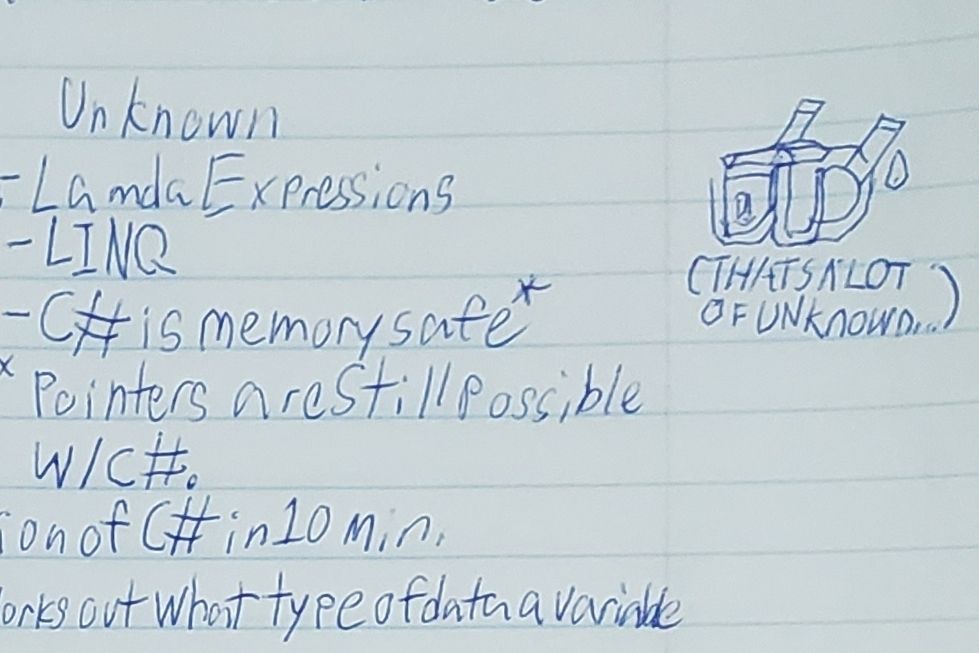 Unknown
- Lamda Expressions
- LINQ
- C# is memory safe*
(THATS A LOT
OF UNKNOWN...)
* Pointers are Still Possible
W/C#.
ion of C# in 10 Min.
orks out what type of data a variable